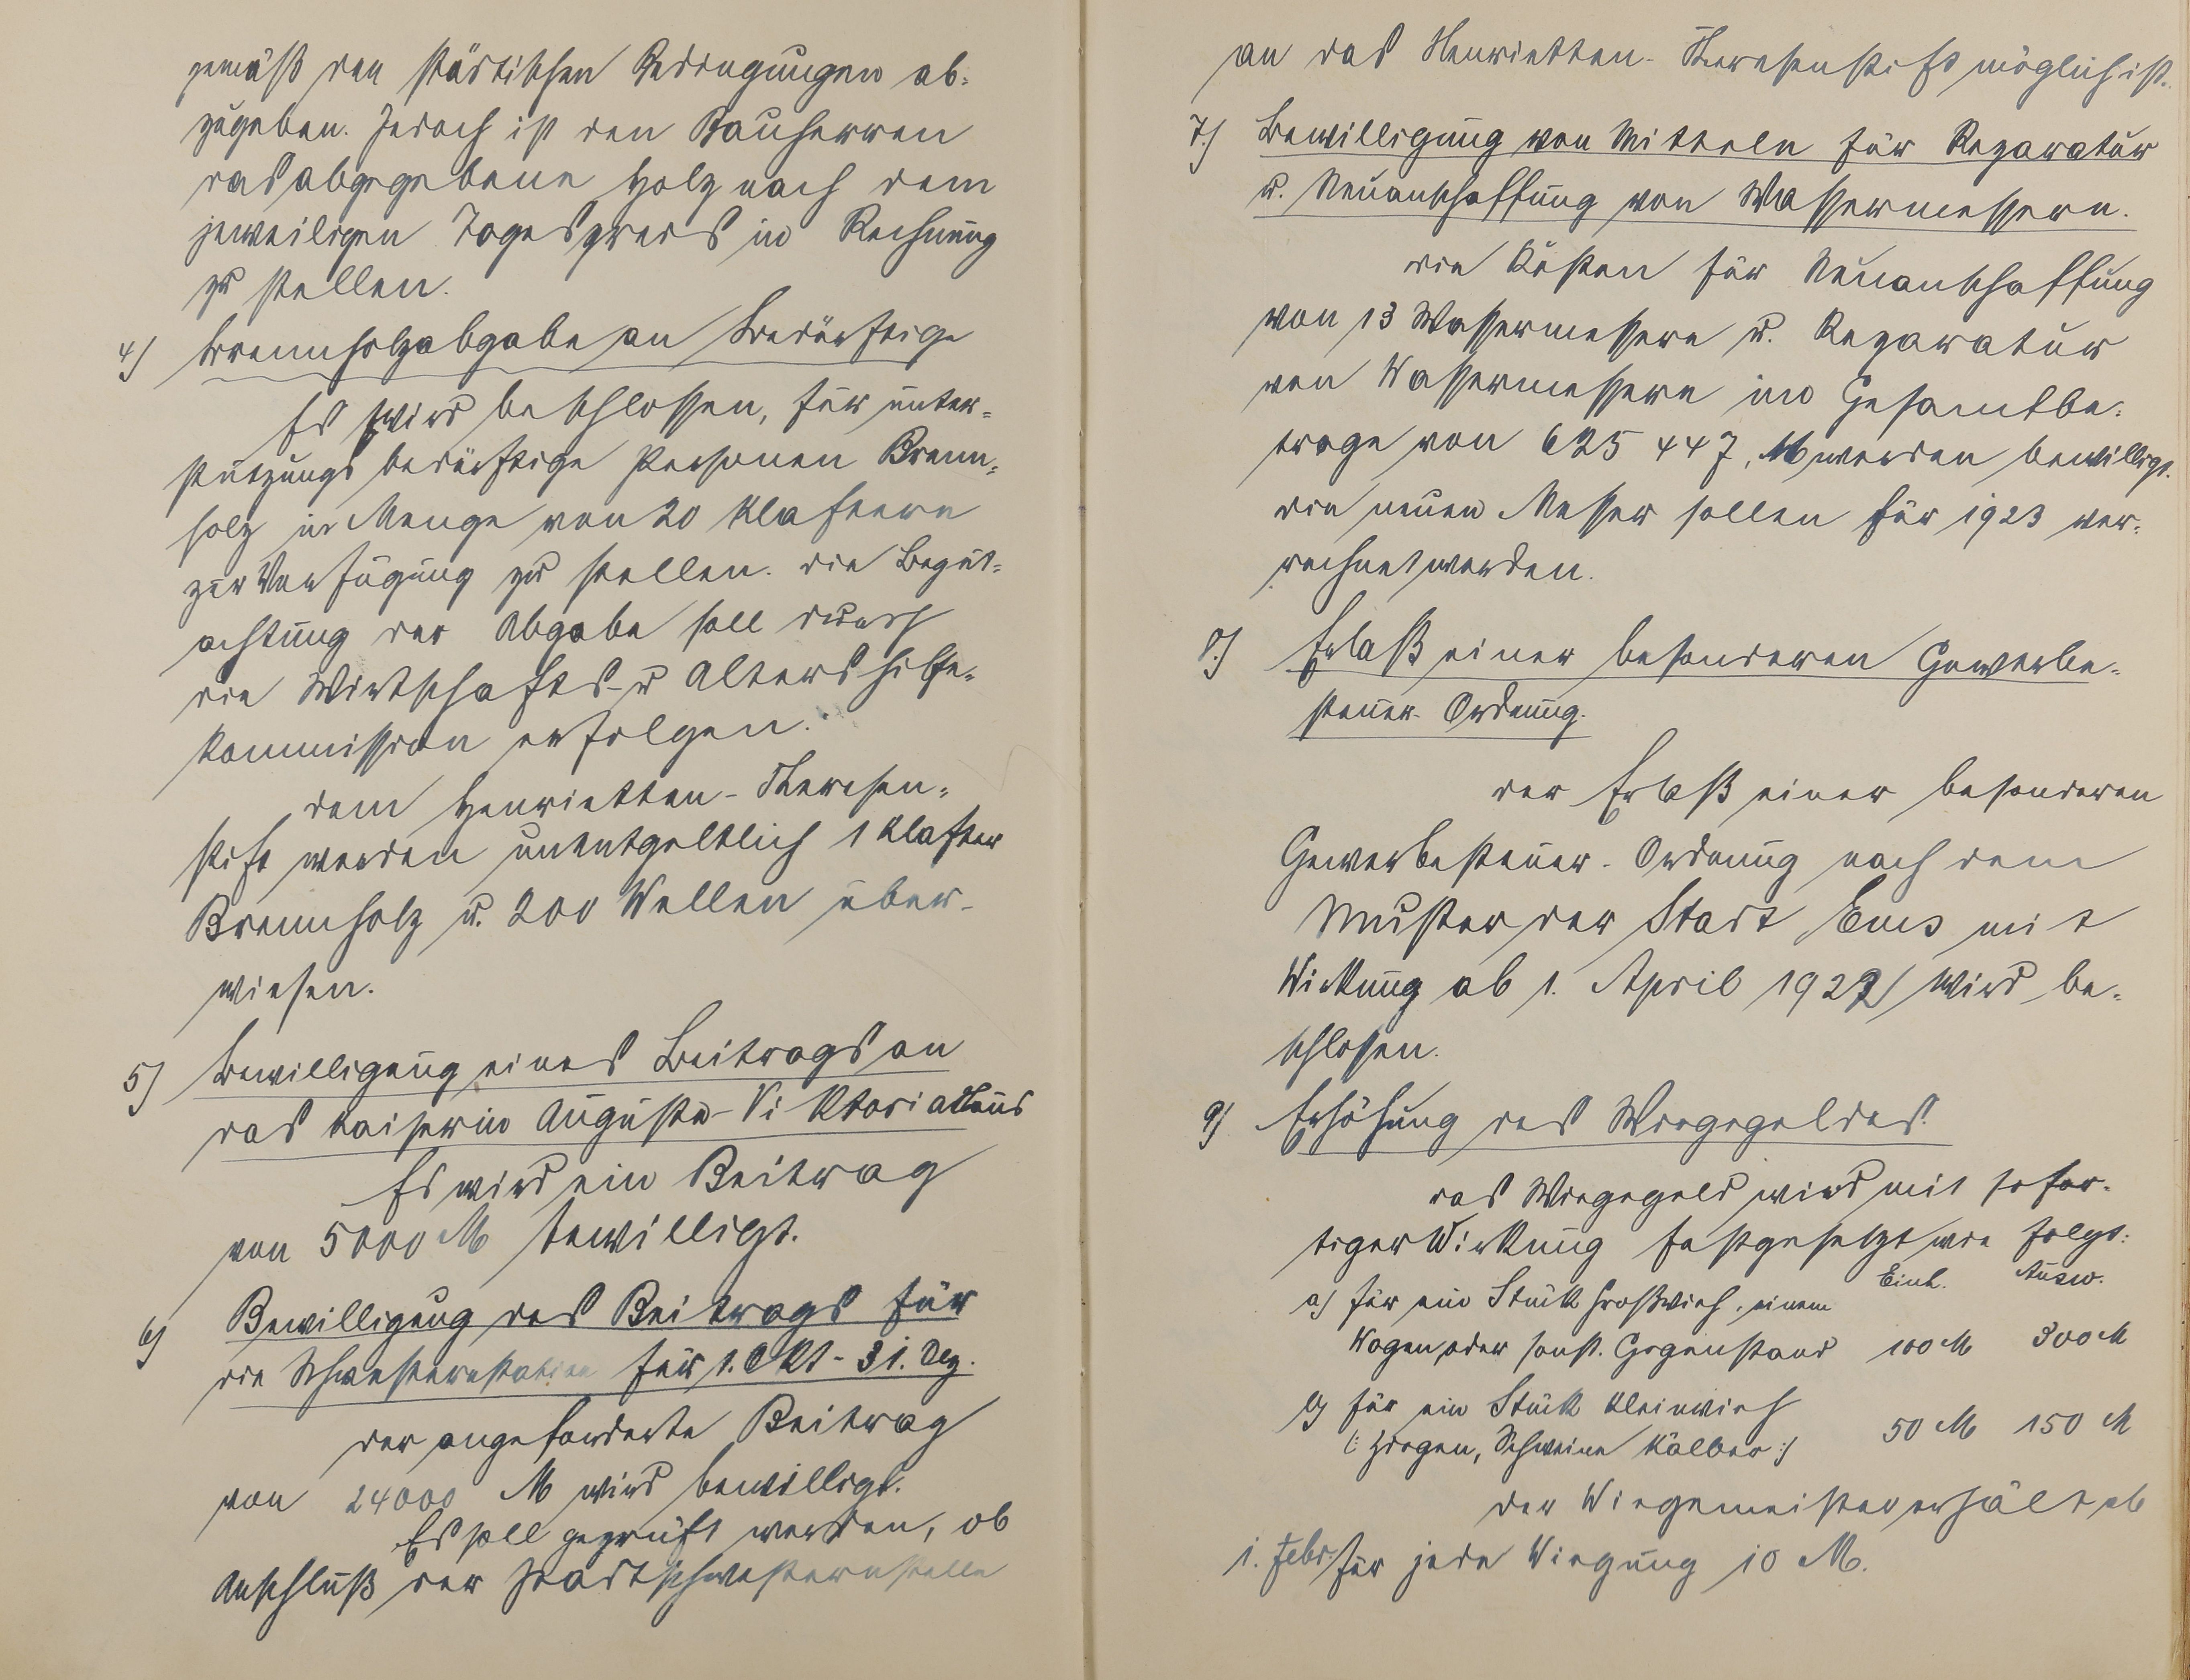 gemäß den städtischen Bedingungen ab=
zugeben. Jedoch ist den Bauherren
das abgegebene Holz nach dem
jeweiligen Tagespreis in Rechnung
zu stellen.
4) Brennholzabgabe an Bedürftige
Es wird beschlossen, für unter=
stützungsbedürftige Personen Brenn=
holz in Menge von 20 Klaftern
zur Verfügung zu stellen. Die Begut=
achtung der Abgabe soll durch
die Wirtschafts- u Altershilfe=
kommission erfolgen.
Dem Henrietten-Theresen=
stift werden unentgeltlich 1 Klafter
Brennholz u. 200 Wellen über-
wiesen.
5) Bewilligung eines Beitrags an
das Kaiserin Auguste-Viktoriahaus
Es wird ein Beitrag
von 5000 M bewilligt.
6) Bewilligung des Beitrags für
die Schwesternstation für 1. Okt - 31. Dez.
Der angeforderte Beitrag
von 24000 M wird bewilligt.
Es soll geprüft werden, ob
Anschluß der Stadtschwesternstelle
an das Henrietten-Theresenstift möglich ist.
7.) Bewilligung von Mitteln für Reparatur
u. Neuanschaffung von Wassermessern.
Die Kosten für Neuanschaffung
von 13 Wassermessern u. Reparatur
von Wassermessern im Gesamtbe=
trage von 625 447, M werden bewilligt.
Die neuen Messer sollen für 1923 ver=
rechnet werden.
8.) Erlaß einer besonderen Gewerbe=
steuer-Ordnung.
Der Erlaß einer besonderen
Gewerbesteuer-Ordnung nach dem
Muster der Stadt Ems mit
Wirkung ab 1. April 1922 wird be=
schlossen.
9) Erhöhung des Wiegegeldes.
Das Wiegegeld wird mit sofor=
tiger Wirkung festgesetzt wie folgt:
Einh. Ausw.
a) für ein Stück Großvieh, einem
Wagen oder sonst. Gegenstand 100 M 300 M
b) für ein Stück Kleinvieh
(: Ziegen, Schweine Kälber :) 50 M 150 M
Der Wiegemeister erhält ab
1. Febr. für jede Wiegung 10 M.